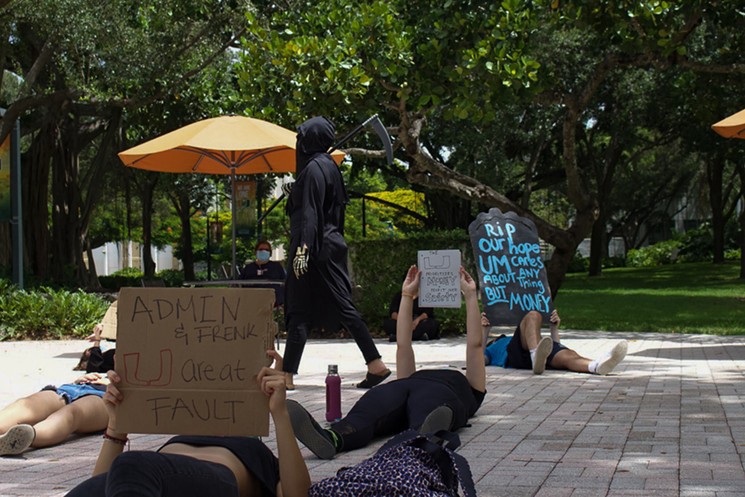 ADMIN
& FRENK
U are at
FAULT
U
RIP
our hope
UM cares
ABOUT ANY
thing
BUT MONEY